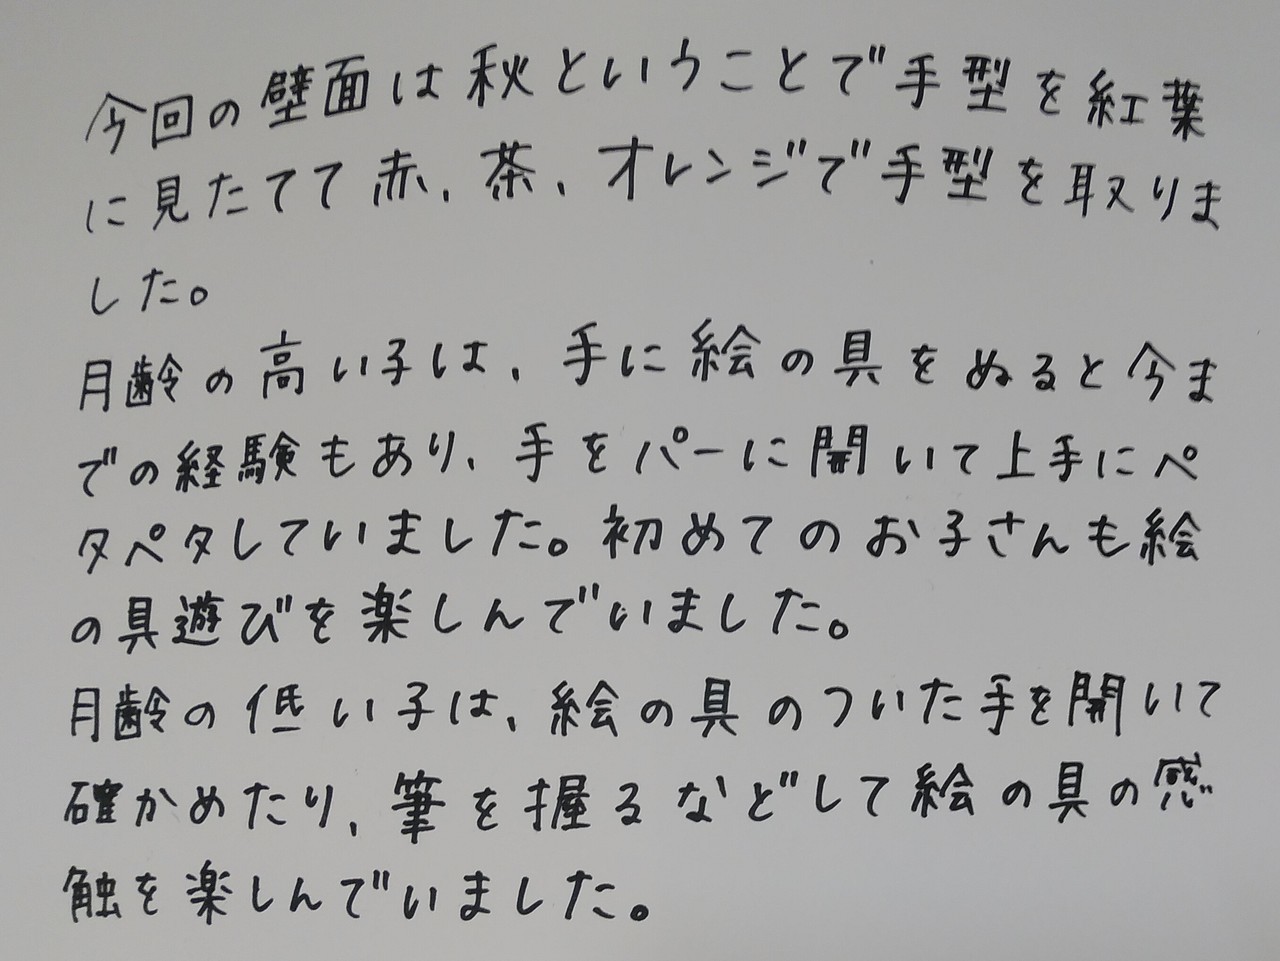 今回の壁面は秋ということで手型を紅葉
に見たてて赤、茶、オレンジで手型を取りま
した。
月齢の高い子は、手に絵の具をぬると今ま
での経験もあり、手をパーに開いて上手にペ
タペタしていました。初めてのお子さんも絵
の具遊びを楽しんでいました。
月齢の低い子は、絵の具のついた手を開いて
確かめたり、筆を握るなどして絵の具の感
触を楽しんでいました。